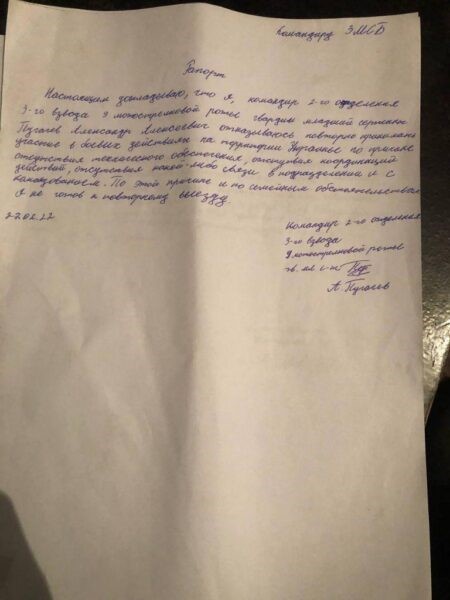 Командиру 3МСБ
Рапорт
Настоящим докладываю, что я, командир 2-го отделения
3-го взвода 9 мотострелковой роты гвардии младший сержант
Пугачев Александр Алексеевич отказываюсь повторно принимать
участие в боевых действиях на территории Украины по причине
отсутствия технического обеспечения, отсутствия координаций
действий, отсутствия какой-либо связи в подразделении и с
командованием. По этой причине и по семейным обстоятельствам
я не готов к повторному выезду
22.02.22
Командир 2-го отделения
3-го взвода
9 мотострелковой роты
гв. мл с-т
А. Пугачев